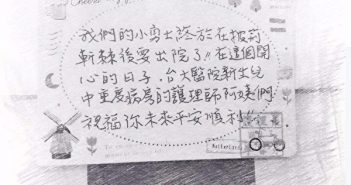 我們的小勇士終於在披荊
斬棘後要出院了!!在這個開
心的日子,台大醫院新生兒
中重度病房的護理師阿姨們
祝福你未來平安順利!!